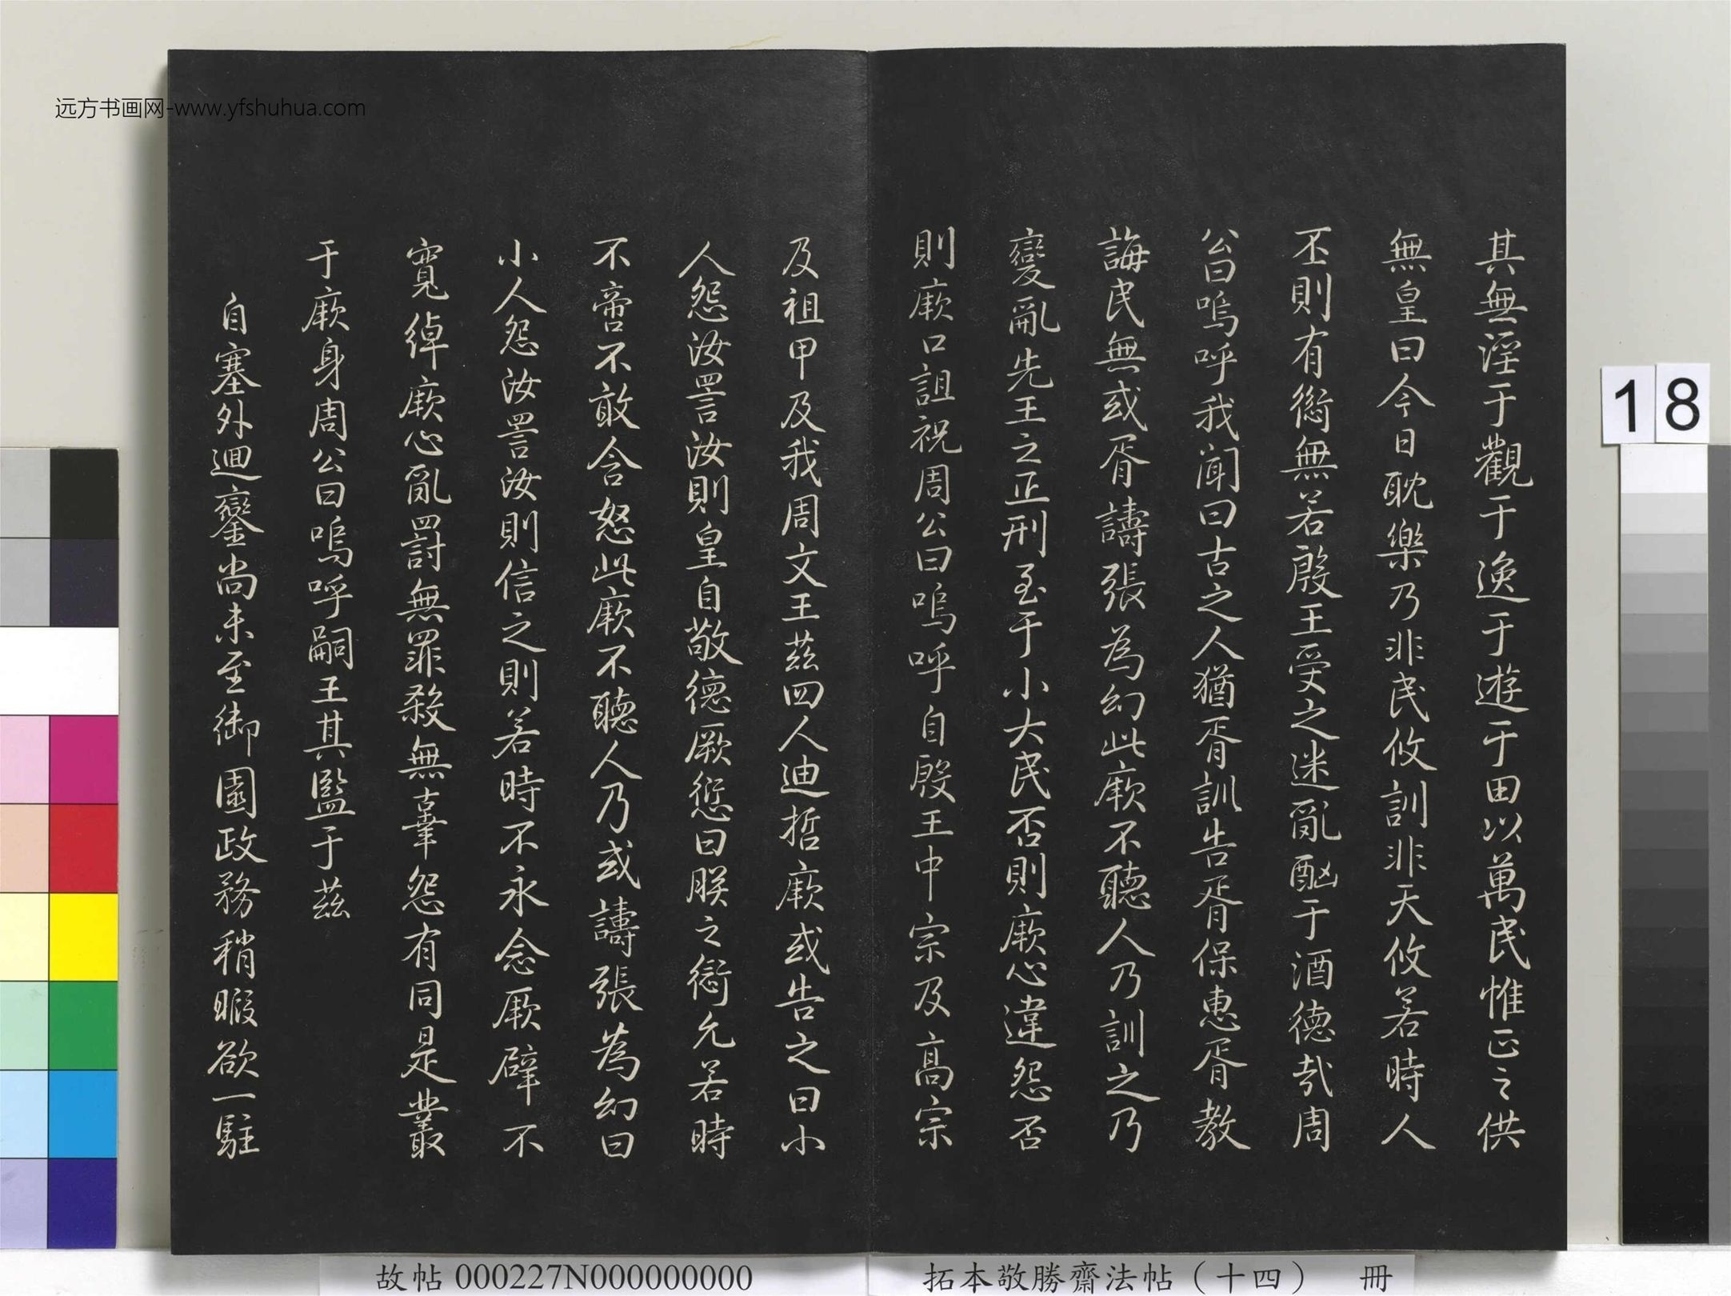 远方书画网-www.yfshuhua.com
其無淫于觀于逸于遊于田以萬民惟正之供
無皇曰今日耽樂乃非民攸訓非天攸若時人
丕則有愆無若殷王受之迷亂酗于酒德哉周
公曰嗚呼我聞曰古之人猶胥訓告胥保惠胥教
誨民無或胥譸張為幻此厥不聽人乃訓之乃
變亂先王之正刑至于小大民否則厥心違怨否
則厥口詛祝周公曰嗚呼自殷王中宗及高宗
及祖甲及我周文王茲四人迪哲厥或告之曰小
人怨汝詈汝則皇自敬德厥愆曰朕之愆允若時
不啻不敢含怒此厥不聽人乃或譸張為幻曰
小人怨汝詈汝則信之則若時不永念厥辟不
寬綽厥心亂罰無罪殺無辜怨有同是叢
于厥身周公曰嗚呼嗣王其監于茲
自塞外迴鑾尚未至御園政務稍暇欲一駐
18
故帖 000227N000000000
拓本敬勝齋法帖（十四） 冊